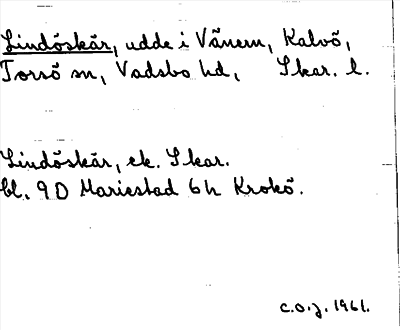 Lindöskär, udde i Vänern, Kalvö,
Torsö sn, Vadsbo hd, Skar. l.
Lindöskär, ek. Skar.
bl. 9D Mariestad 6h Krokö.
C.O.J. 1961.